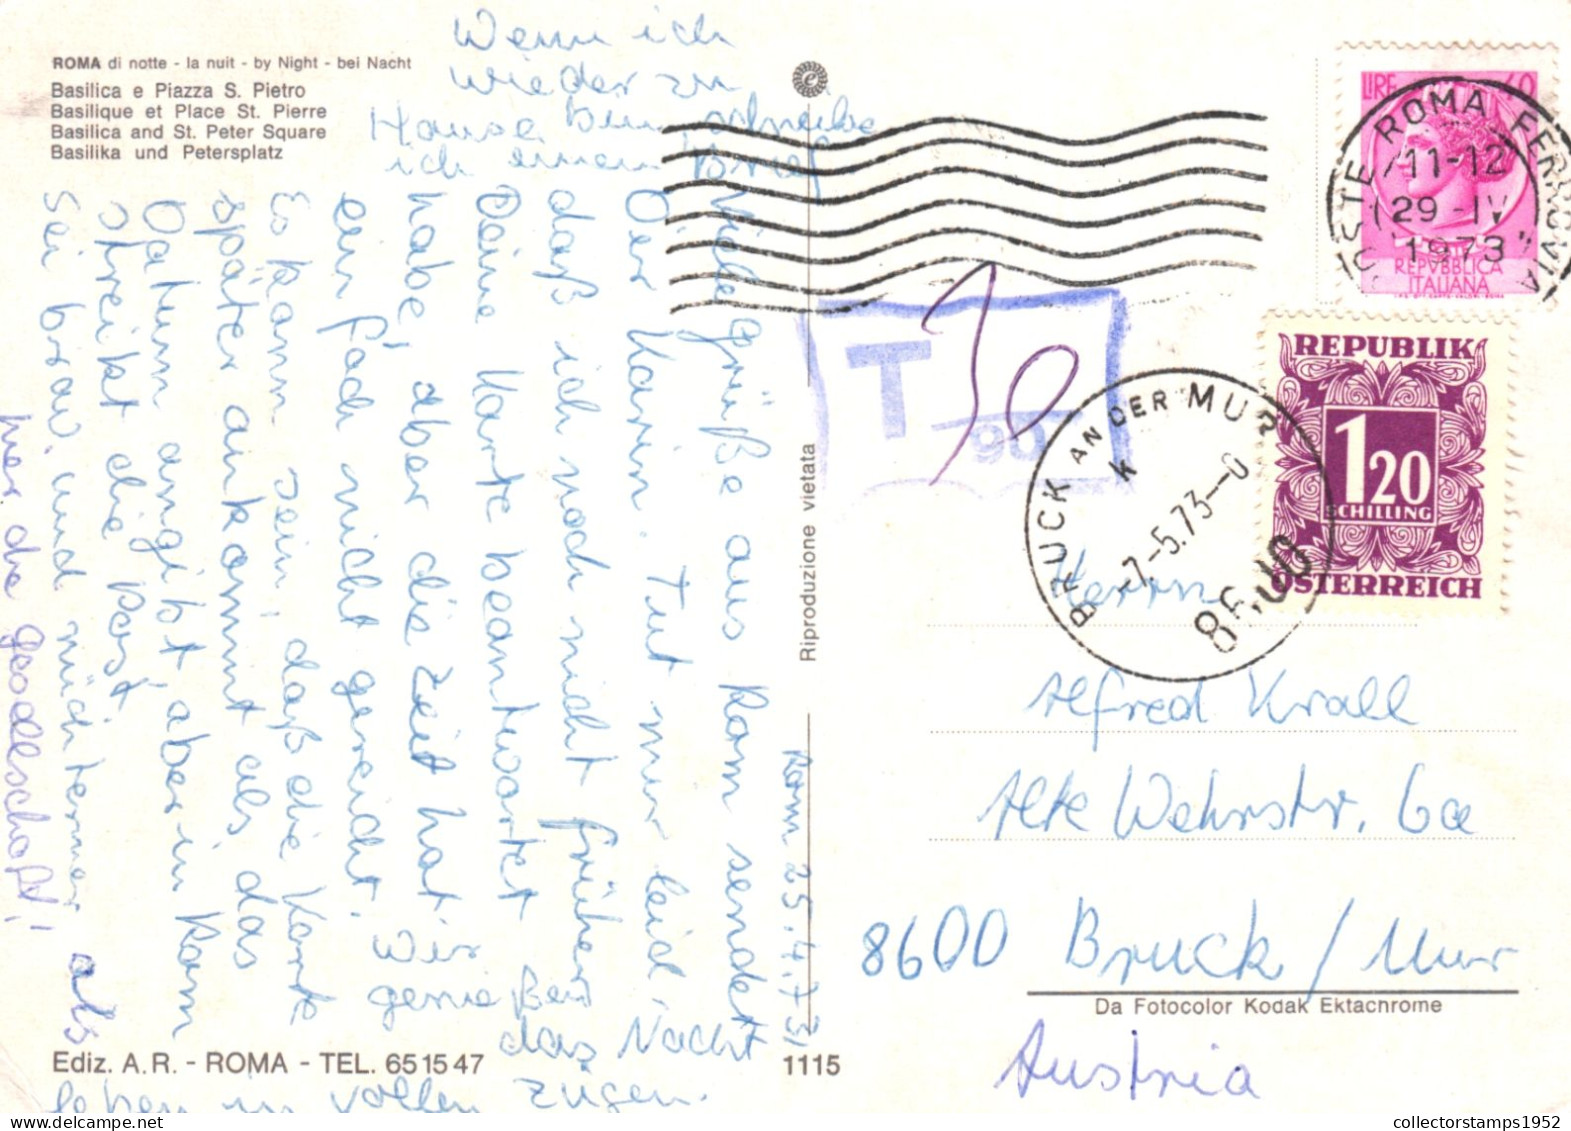 ROMA di notte - la nuit - by Night - bei Nacht
Basilica e Piazza S. Pietro
Basilique et Place St. Pierre
Basilica and St. Peter Square
Basilika und Petersplatz
Rom 25.4.73
Viele Grüße aus Rom sendet
Dier Karin. Tut mir leid,
daß ich noch nicht früher
Deine Karte beantwortet
habe, aber die Zeit hat
einfach nicht gereicht.
Es kann sein, daß die Karte
später ankommt als das
Datum angibt, aber in Rom
streikt die Post.
Sei brav, und nicht
Wir
genießen
das Nacht
leben in vollen Zügen.
Wenn ich
wieder zu
Hause bin, schreibe
ich einen Brief
LIRE 60
REPVBBLICA
ITALIANA
POSTE ROMA FERROVIA
11-12
29-IV
1973
T 30
90
REPUBLIK
1 20
SCHILLING
ÖSTERREICH
BRUCK AN DER MUR
k
-7.-5.73--0
8600
Riproduzione vietata
Herrn
Alfred Krall
Alte Wehrstr. 6a
8600 Bruck / Mur
Da Fotocolor Kodak Ektachrome
Austria
Ediz. A.R. - ROMA - TEL. 651547
1115
collectorstamps1952